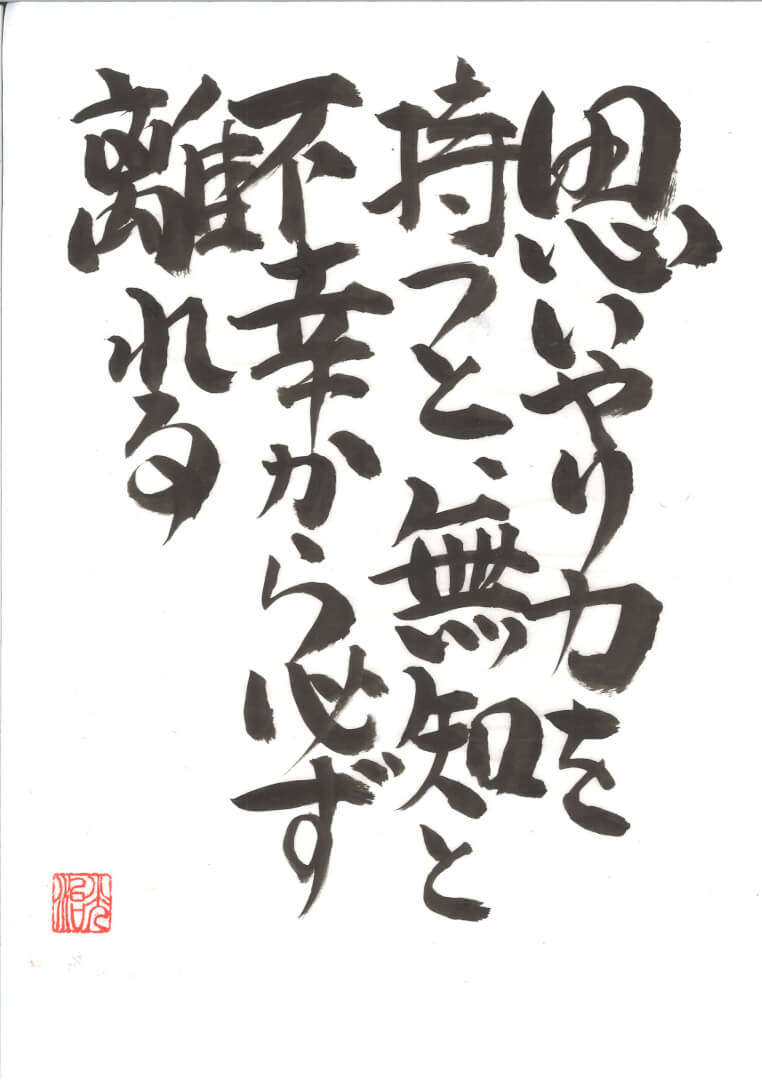 思いやり力を
持つと、無知と
不幸から必ず
離れる